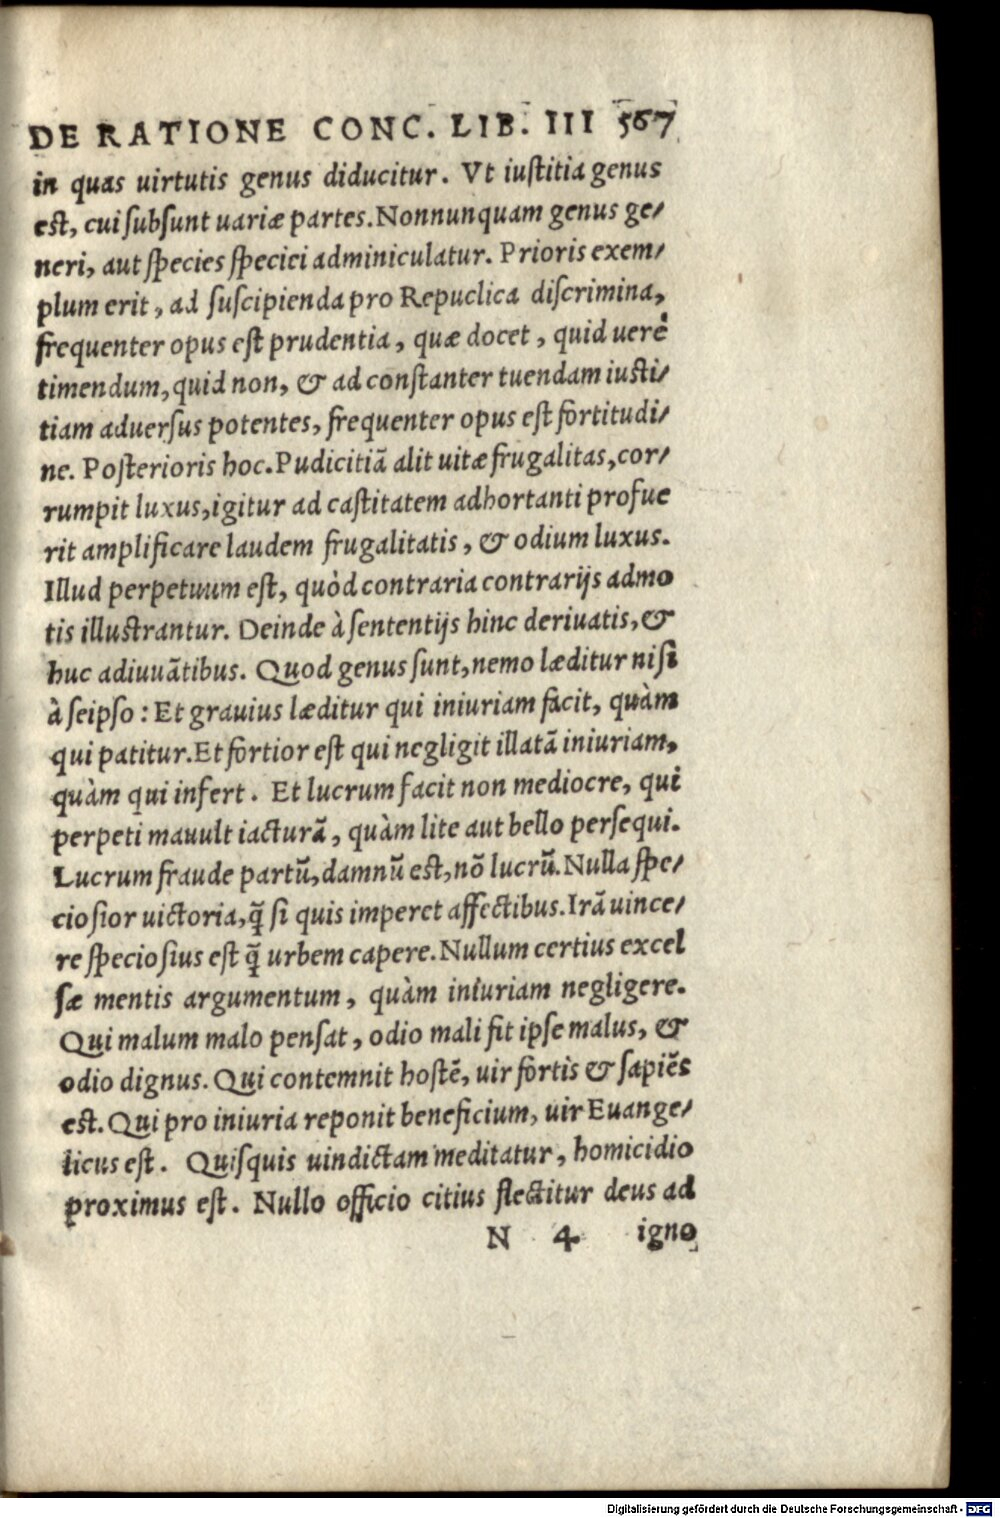 DE RATIONE CONC. LIB. III 567
in quas uirtutis genus diducitur. Vt iustitia genus
est, cui subsunt uariæ partes. Nonnunquam genus ge/
neri, aut species speciei adminiculatur. Prioris exem/
plum erit, ad suscipienda pro Repuclica discrimina,
frequenter opus est prudentia, quæ docet, quid uerè
timendum, quid non, & ad constanter tuendam iusti/
tiam aduersus potentes, frequenter opus est fortitudi/
ne. Posterioris hoc. Pudicitiā alit uitæ frugalitas, cor/
rumpit luxus, igitur ad castitatem adhortanti profue
rit amplificare laudem frugalitatis, & odium luxus.
Illud perpetuum est, quòd contraria contrarijs admo
tis illustrantur. Deinde à sententijs hinc deriuatis, &
huc adiuuātibus. Quod genus sunt, nemo læditur nisi
à seipso: Et grauius læditur qui iniuriam facit, quàm
qui patitur. Et fortior est qui negligit illatā iniuriam,
quàm qui infert. Et lucrum facit non mediocre, qui
perpeti mauult iacturā, quàm lite aut bello persequi.
Lucrum fraude partū, damnū est, nō lucrū. Nulla spe/
ciosior uictoria, q̄ si quis imperet affectibus. Irā uince/
re speciosius est q̄ urbem capere. Nullum certius excel
sæ mentis argumentum, quàm iniuriam negligere.
Qui malum malo pensat, odio mali fit ipse malus, &
odio dignus. Qui contemnit hostē, uir fortis & sapiēs
est. Qui pro iniuria reponit beneficium, uir Euange/
licus est. Quisquis uindictam meditatur, homicidio
proximus est. Nullo officio citius flectitur deus ad
N 4 igno
Digitalisierung gefördert durch die Deutsche Forschungsgemeinschaft - DFG